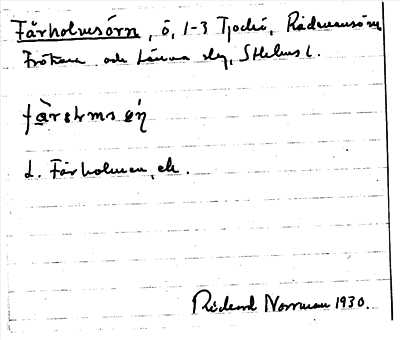 Fårholmsörn, ö, 1-3 Tjockö, Rådmansö sn,
Frötuna och Länna slg, Sthlms l.
d. Fårholmen, ek.
Rickard Norrman 1930.